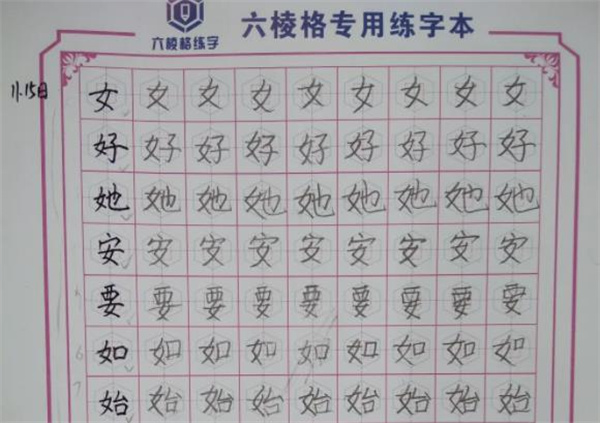 六棱格练字
六棱格专用练字本
11.15日
女女女女女女女女女
好好好好好好好好好
她她她她她她她她她
安安安安安安安安安
要要要要要要要要要
如如如如如如如如如
始始始始始始始始始